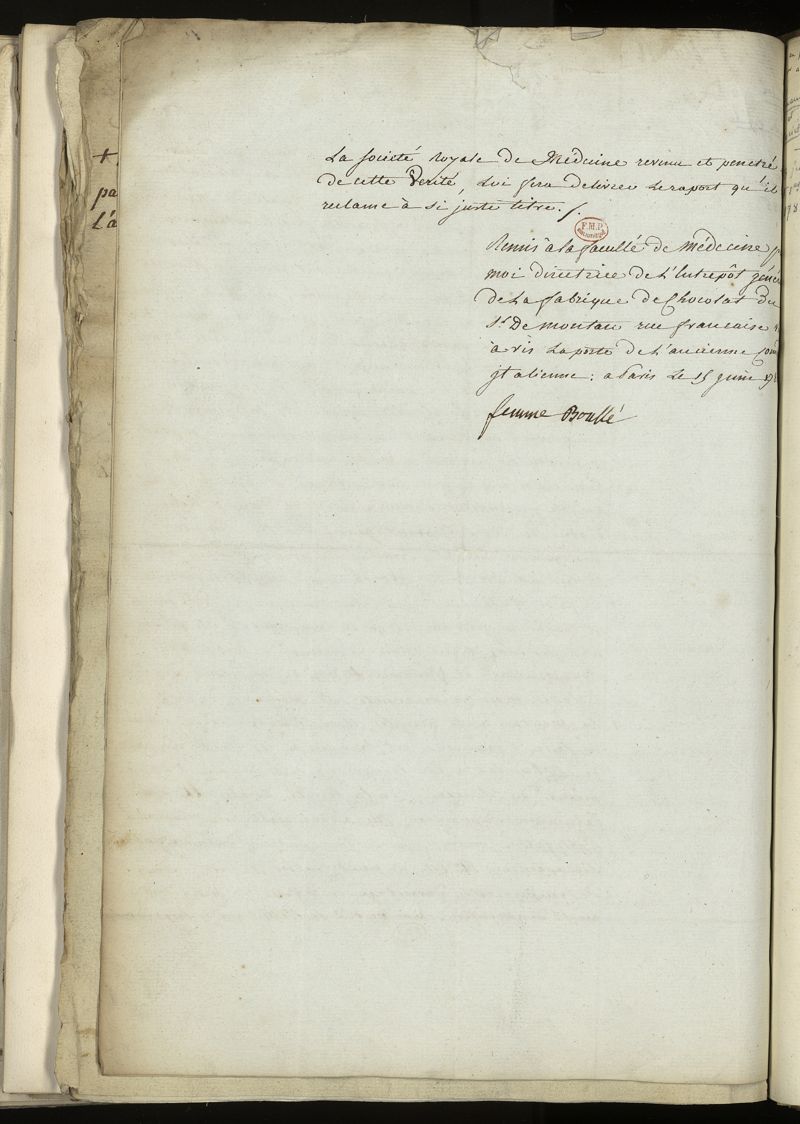 La société royale de Médecine revenu et penetré
de cette verité, Lui fera delivrer Le raport qu'il
reclame à si juste titre ./.
F.M.P.
Remis à la faculté de medecine
moi directrice de L'Entrepôt géné
de La fabrique de Chocolat du
Sr. De montau rue francaise
à vis La porte de L'ancienne Com
jtalienne : a Paris Le 15 juin 17
femme Boullé
+
pa
L'a